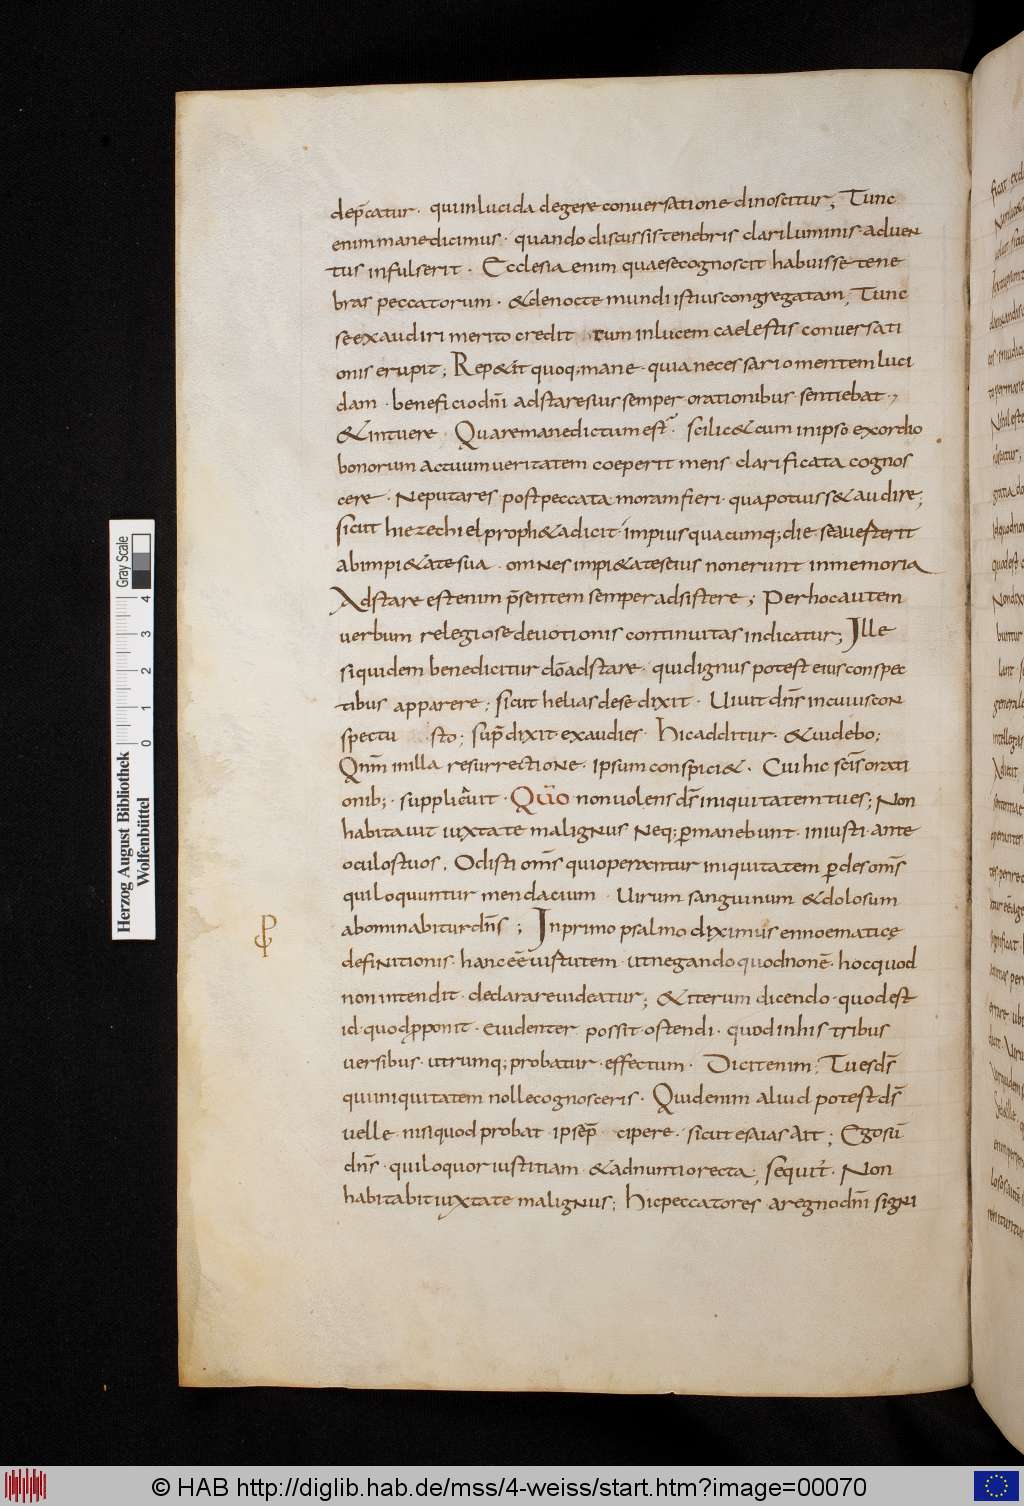 dep̄catur · quiinlucida degere conuersatione dinoscitur; Tunc
enim mane dicimus · quando discussis tenebris clari luminis · aduen
tus infulserit · Ecclesia enim quae se cognoscit habuisse tene
bras peccatorum · & de nocte mundi istius congregatam; Tunc
se exaudiri merito credit cum in lucem caelestis conuersati
onis erupit; Rep&it quoq; mane · quia necessario mentem luci
dam · beneficio dn̄i adstare suis semper orationibus · sentiebat ·
& intuere · Quare mane dictum est · scilic& cum in ipso exordio
bonorum actuum ueritatem coeperit mens · clarificata cognos
cere · Ne putares post peccata moram fieri · qua potuiss& audire;
sicut hiezechiel proph&a dicit · impius quacumq; die se auesterit
ab impi&ate sua · omnes impi&ates eius non erunt in memoria
Adstare est enim p̄sentem semper adsistere; Per hoc autem
uerbum relegiose deuotionis continuitas indicatur; Ille
siquidem benedicitur dō adstare · qui dignus potest eius conspec
tibus apparere; sicut helias de se dixit · Uiuit dn̄s in cuius con
spectu sto; sup̄ dixit exaudies · Hic additur · & uidebo;
Qn̄m in illa resurrectione · ipsum conspici& · Cui hic sc̄is orati
onib; · supplicauit · Quō non uolens ds̄ iniquitatem tu es; Non
habitauit iuxta te malignus Neq; ꝑmanebunt · iniusti · ante
oculos tuos · Odisti om̄s qui operantur iniquitatem ꝑdes om̄s
qui loquuntur mendacium · Uirum sanguinum & dolosum
abominabitur dn̄s; In primo psalmo diximus ennoematicę
definitionis · hanc eē uistutem · ut negando quod non ē · hoc quod
non intendit · declarare uideatur; & iterum dicendo · quod est
id · quod ꝓponit · euidenter possit · ostendi · quod in his tribus
uersibus · utrumq; probatur · effectum · Dicit enim; Tu es ds̄
qui iniquitatem nolle cognosceris · Quid enim aliud potest ds̄
uelle · nisi quod probat · ipse p̄cipere · sicut esaias ait; Ego sū
dn̄s · qui loquor iustitiam · & adnuntio recta; sequit᷑ · Non
habitabit iuxta te malignus; Hic peccatores a regno dn̄i signi
Herzog August Bibliothek
Wolfenbüttel
Gray Scale
0 1 2 3 4
© HAB http://diglib.hab.de/mss/4-weiss/start.htm?image=00070